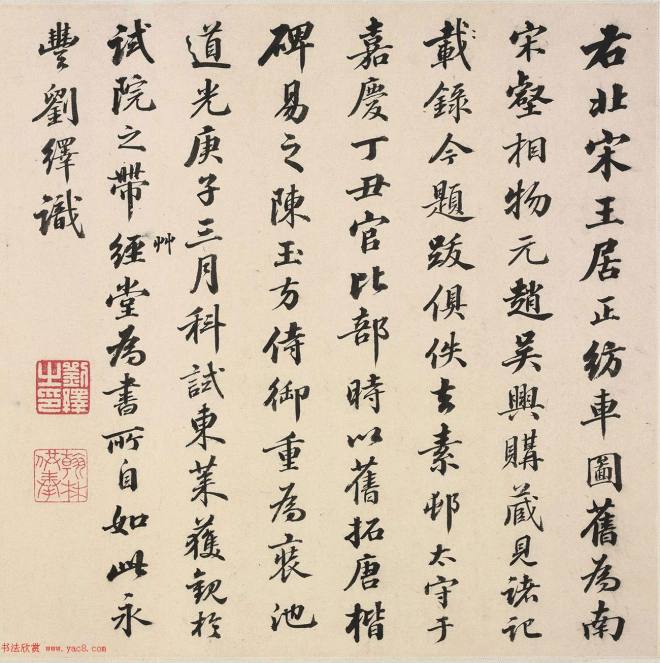 右北宋王居正紡車圖舊為南
宋壑相物元趙吳興購藏見諸記
載錄今題跋俱佚去素邨太守于
嘉慶丁丑官比部時以舊拓唐楷
碑易之陳玉方侍御重為裝池
道光庚子三月科試東萊獲觀於
試院之帶經堂為書所自如此永
艸
豐劉繹識
劉繹之印
翰林供奉
书法欣赏 www.yac8.com